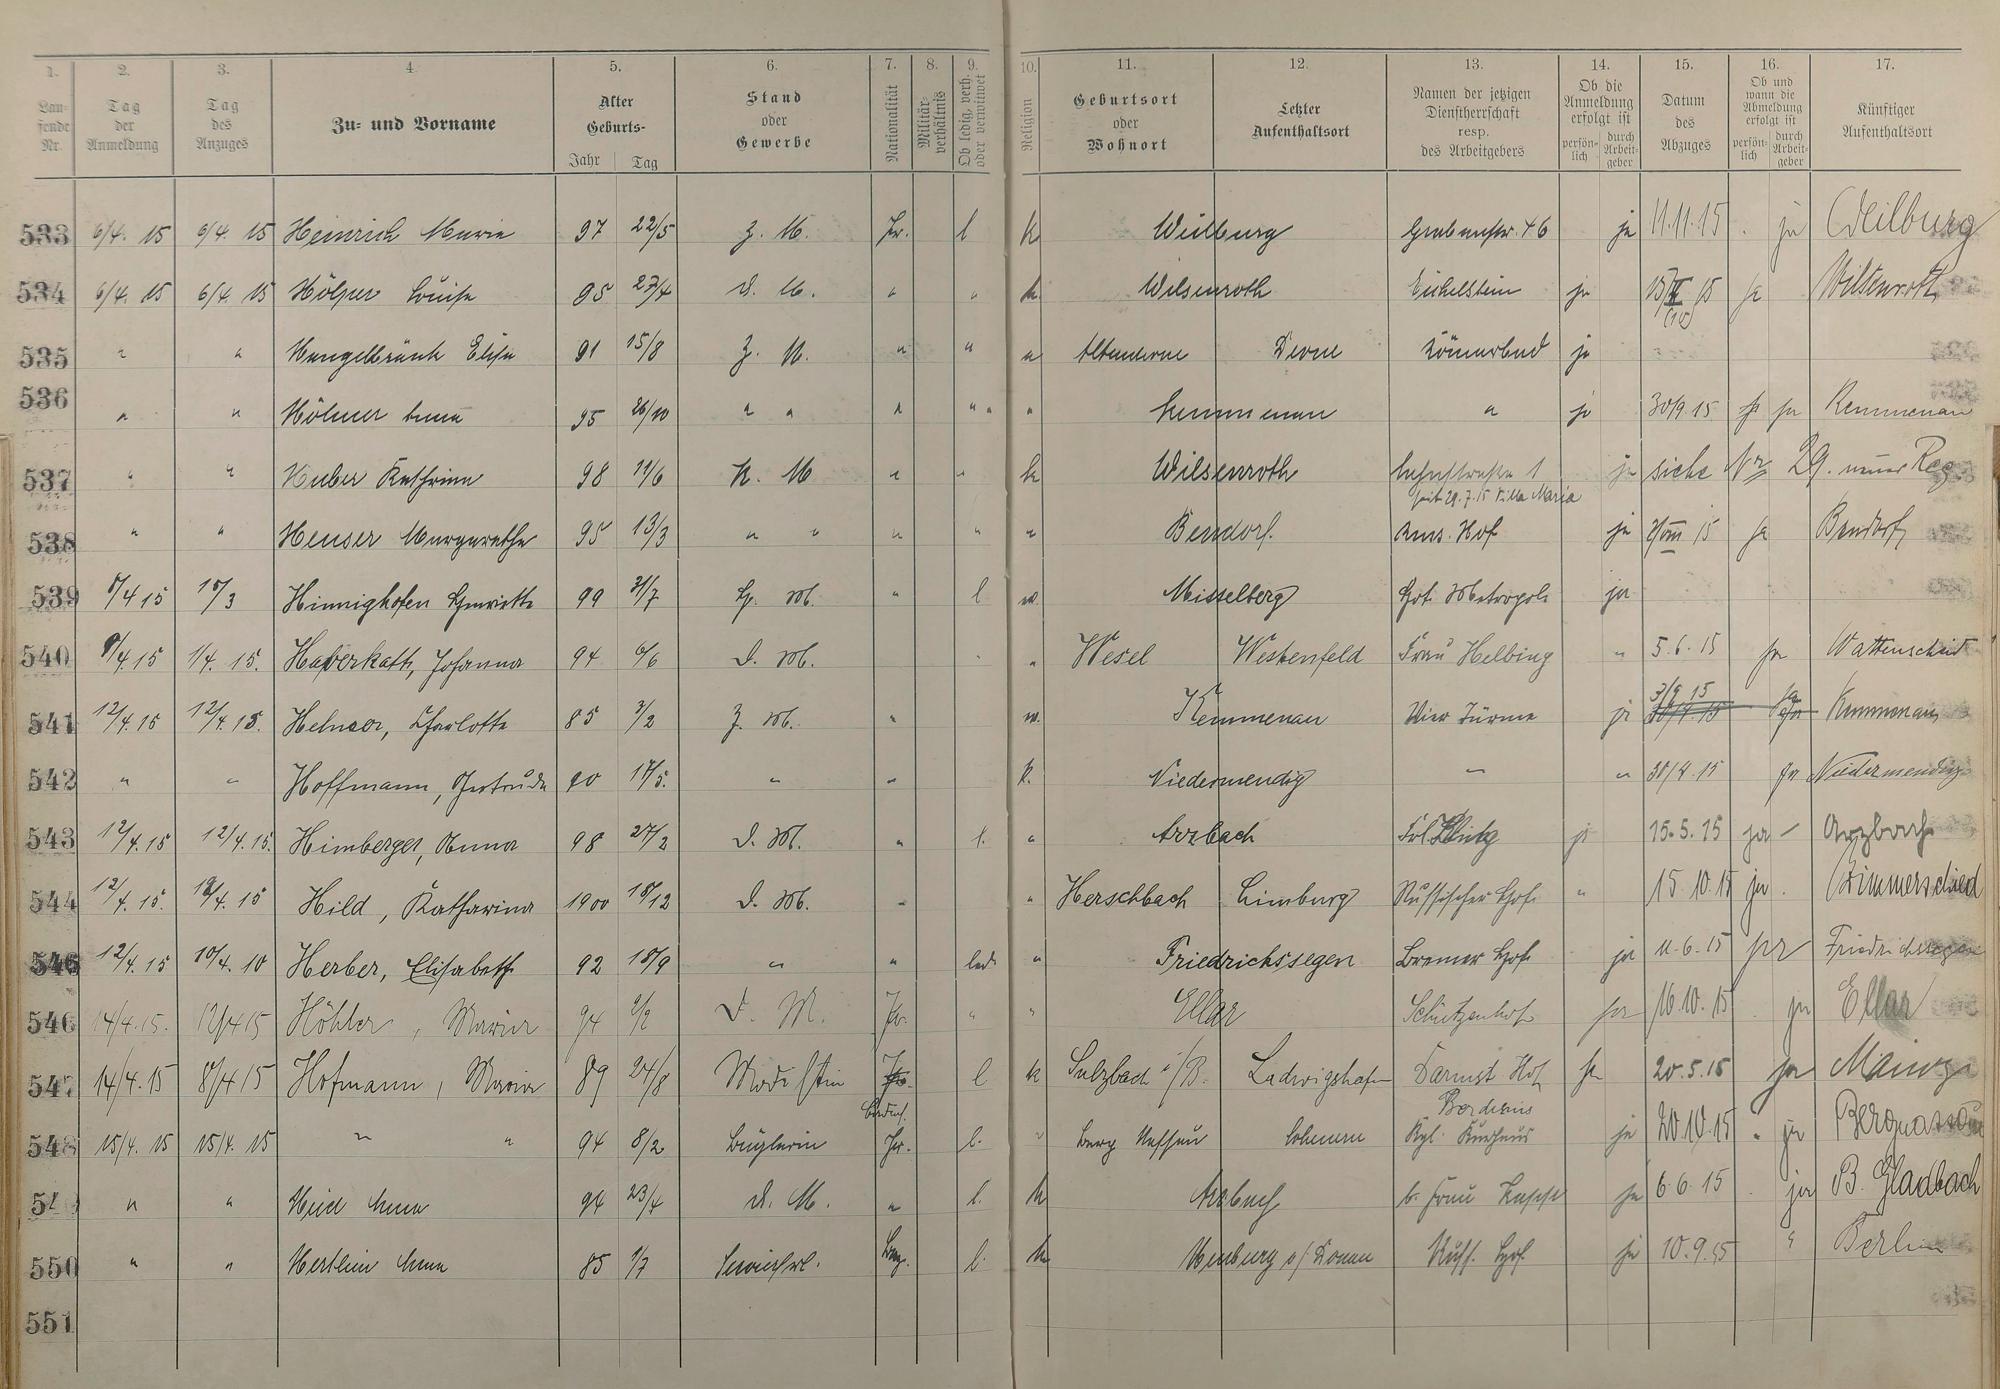 1. 2. 3. 4. 5. 6. 7. 8. 9. 10. 11. 12. 13. 14. 15. 16. 17.
Lau-fende Nr. | Tag der Anmeldung | Tag des Anzuges | Zu- und Vorname | Alter Geburts- Jahr Tag | Stand oder Gewerbe | Nationalität | Militär-verhältnis | Ob ledig, verh. oder verwitwet | Religion | Geburtsort oder Wohnort | Letzter Aufenthaltsort | Namen der jetzigen Dienstherrschaft resp. des Arbeitgebers | Ob die Anmeldung erfolgt ist persön-lich durch Arbeit-geber | Datum des Abzuges | Ob und wann die Abmeldung erfolgt ist persön-lich durch Arbeit-geber | Künftiger Aufenthaltsort
533 6/4. 15 6/4. 15 Heinrich Marie 97 22/5 Z. M. Pr. l k Weilburg Grabenstr. 46 ja 11.11.15 ja Weilburg
534 6/4. 15 6/4. 15 Hölper Louise 95 27/4 d. M. " " k. Wilsenroth Eichelstein ja 15 ja Wilsenroth
535 " " Elise 91 15/8 Z. M. " " " Altenderne Derne Römerbad ja
536 " " Anna 95 26/10 " " " " " Kemmenau " ja 30/9. 15. ja Kemmenau
537 " " Huber Kathrina 98 11/6 K. M " " k Wilsenroth 1 ja siehe Nr 29. neues Reg.
seit 29.7.15 Villa Maria
538 " " Heuser Margarethe 95 13/3 " " " " " Bendorf. Russ. Hof ja 15 ja Bendorf
539 8/4 15 15/3 Hinnighofen Henriette 99 31/7 M. " l Misselberg Hot. Metropole ja
540 9/4.15 1/4. 15. Haverkath, Johanna 94 6/6 D. M. " Wesel Westenfeld Frau Helbing " 5.6.15 ja Wattenscheid
541 12/4.15 12/4.15. Charlotte 85 3/2 Z. M. " Kemmenau Vier Türme ja 3/9 15 30/4.15 ja Kemmenau
542 " " Hoffmann, Gertrude 90 17/5. " " k. Niedermendig " " 30/4.15 ja Niedermendig
543 12/4.15 12/4.15. Himberger, Anna 98 27/2 D. M. " l. " Arzbach Frl. ja 15.5.15 ja Arzbach
544 12/4. 15. 12/4. 15 Hild, Katharina 1900 18/12 D. M. " " Herschbach Limburg Russischer Hof " 15.10.15 ja.
545 12/4.15 10/4. 10 Herber, Elisabeth 92 18/9 " " led. " Friedrichssegen Bremer Hof ja 11.6.15 ja Friedrichssegen
546 14/4.15. 12/4 15 Höhler, Maria 94 2/2 D. M. Pr. " " Ellar Schützenhof ja 16.10.15 ja Ellar
547 14/4.15 8/4 15 Hofmann, Maria 89 24/8 Modistin l k Sulzbach i/B. Ludwigshafen Darmst Hof ja 20.5.15 ja Mainz
548 15/4. 15 15/4. 15 " " 94 8/2 Büglerin Pr. l. " Berg Nassau Kgl. Kurhaus ja 20.10.15 ja Bergnassau
" " Anna 94 23/4 d. M. " l. k Arzbach b. Frau ja 6.6.15 ja B. Gladbach
550 " " Anna 85 1/7 l. k Donau Russ. Hof ja 10.9.15 " Berlin
551